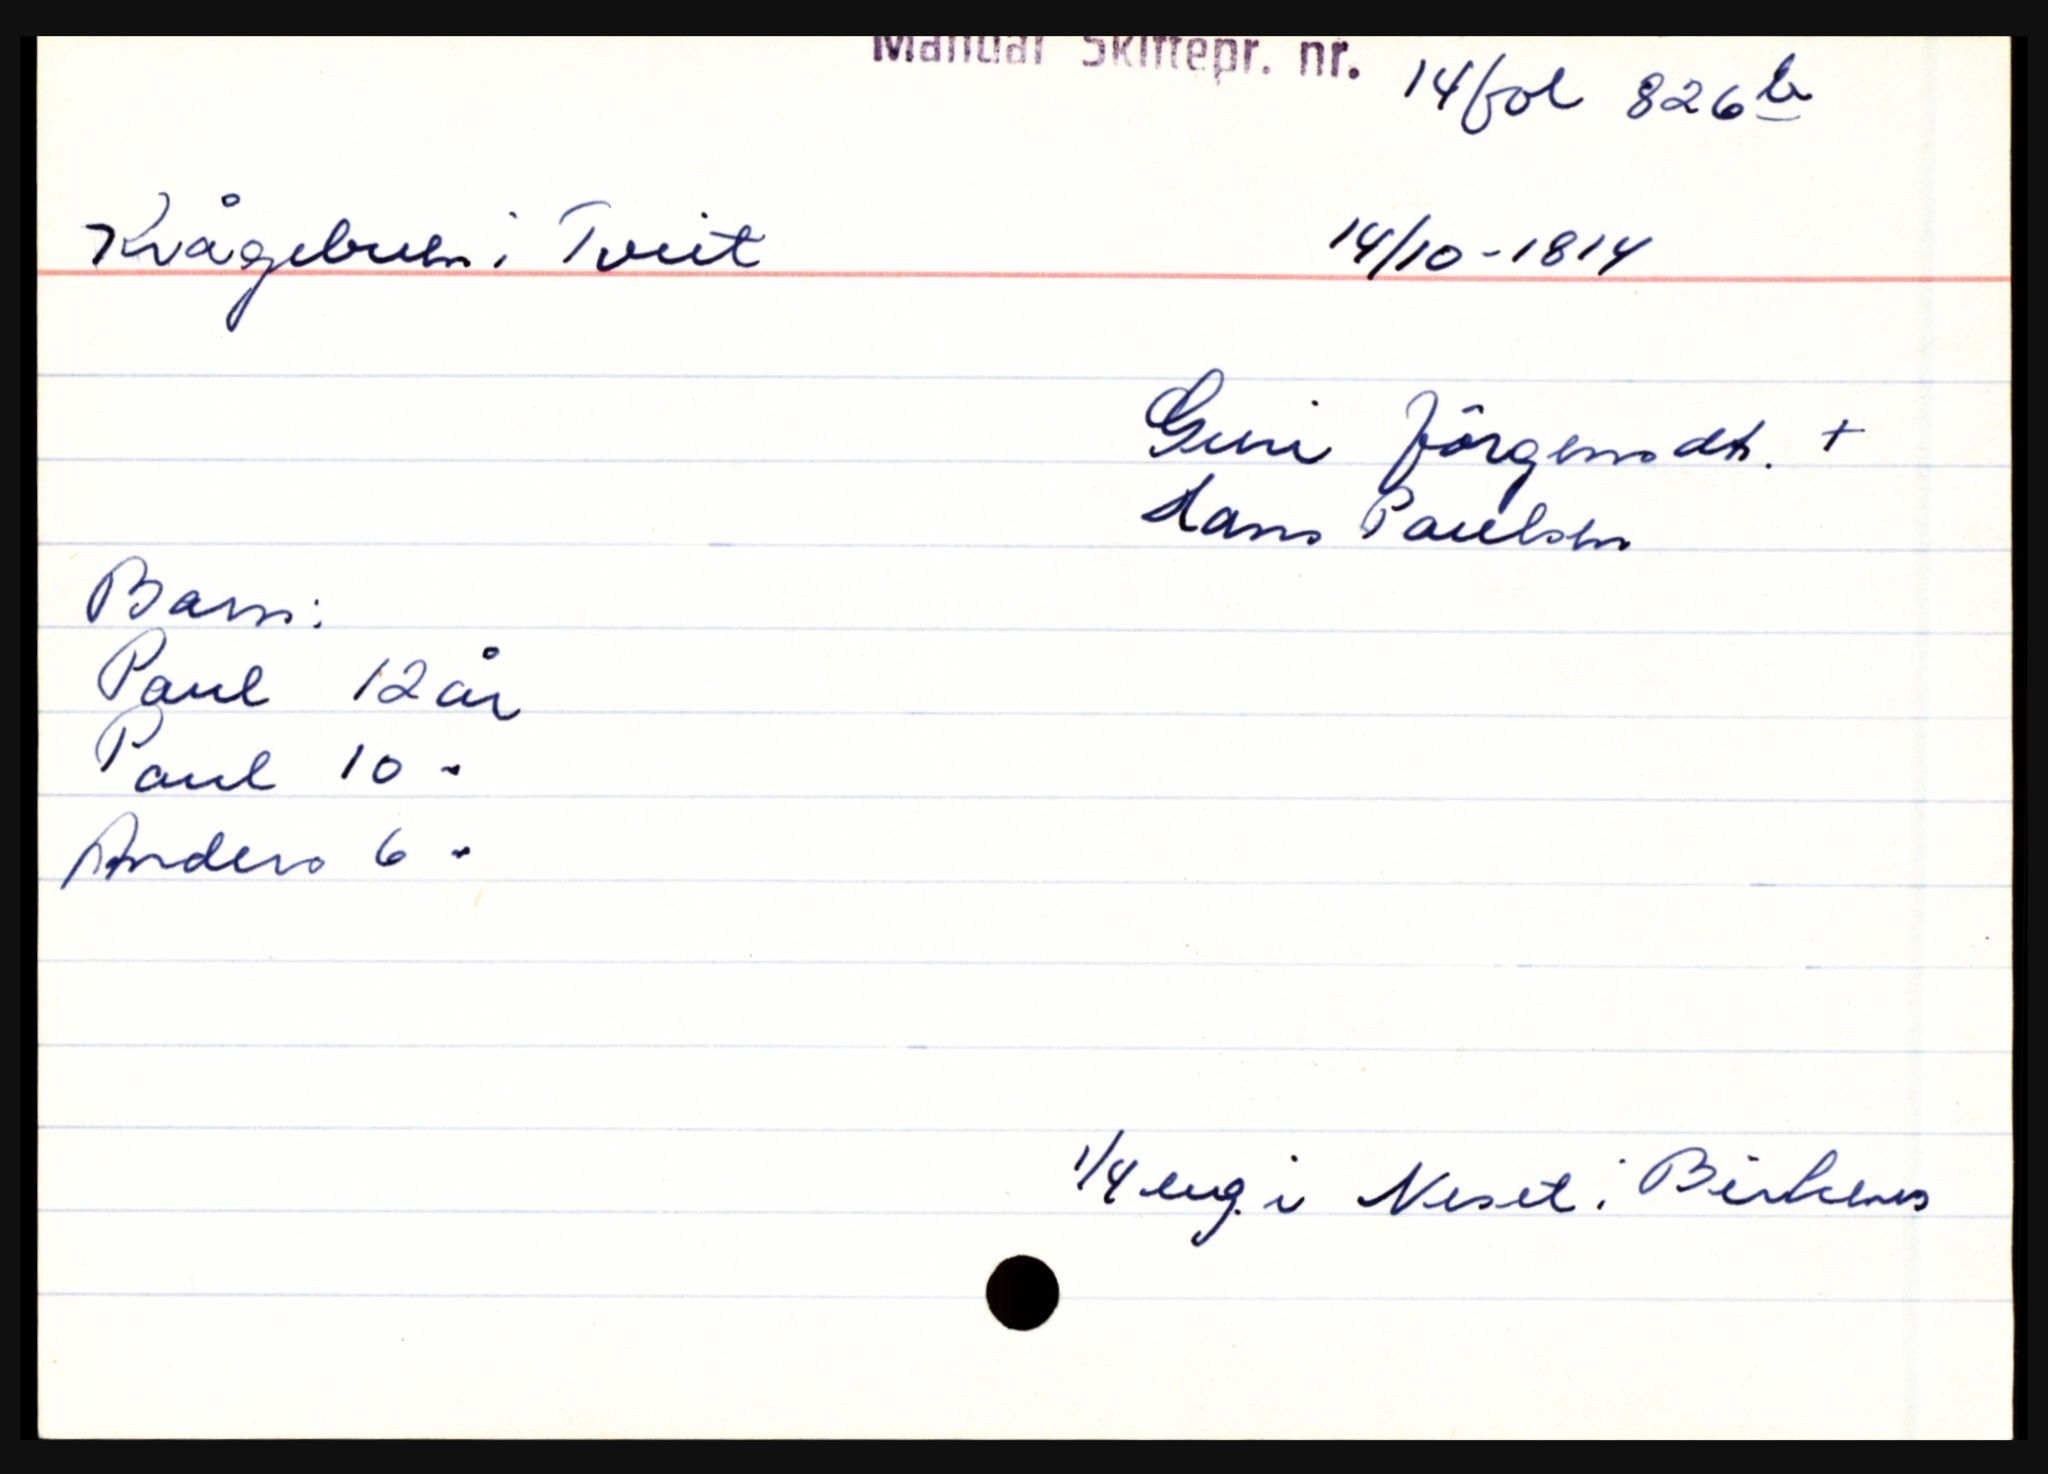 Manual Skiftepr. nr. 14 fol 826 b
Kvågebuen i Tveit 14/10-1814
Guri Jörgensdt. +
Hans Paulsen
Barn:
Paul 12 år
Paul 10 -
Anders 6 -
1/4 eng. i Neset i Birkenes